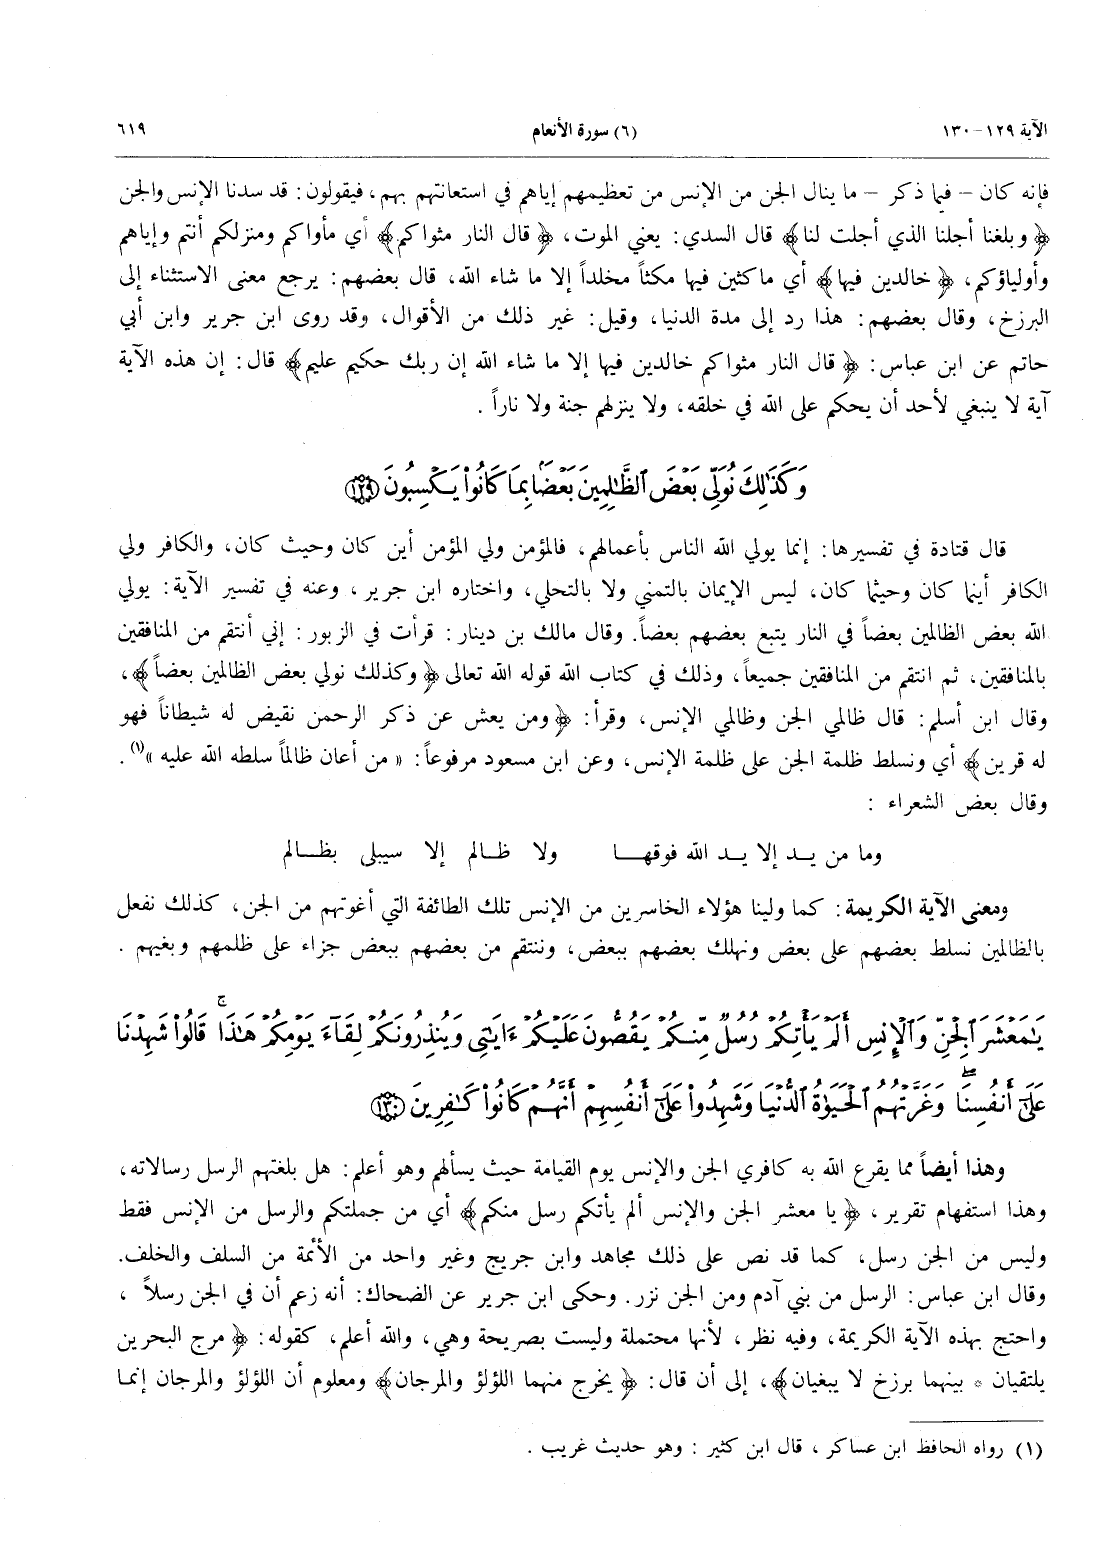 الآية ١٢٩-١٣٠ (٦) سورة الأنعام ٦١٩
فإنه كان – فيما ذكر – ما ينال الجن من الإنس من تعظيمهم إياهم في استعانتهم بهم، فيقولون: قد سدنا الإنس والجن
﴿وبلغنا أجلنا الذي أجلت لنا﴾ قال السدي: يعني الموت، ﴿قال النار مثواكم﴾ أي مأواكم ومنزلكم أنتم وإياهم
وأولياؤكم، ﴿خالدين فيها﴾ أي ماكثين فيها مكثاً مخلداً إلا ما شاء الله، قال بعضهم: يرجع معنى الاستثناء إلى
البرزخ، وقال بعضهم: هذا رد إلى مدة الدنيا، وقيل: غير ذلك من الأقوال، وقد روى ابن جرير وابن أبي
حاتم عن ابن عباس: ﴿قال النار مثواكم خالدين فيها إلا ما شاء الله إن ربك حكيم عليم﴾ قال: إن هذه الآية
آية لا ينبغي لأحد أن يحكم على الله في خلقه، ولا ينزلهم جنة ولا ناراً .
وَكَذَٰلِكَ نُوَلِّي بَعْضَ ٱلظَّٰلِمِينَ بَعْضًۢا بِمَا كَانُوا۟ يَكْسِبُونَ ١٢٩
قال قتادة في تفسيرها: إنما يولي الله الناس بأعمالهم، فالمؤمن ولي المؤمن أين كان وحيث كان، والكافر ولي
الكافر أينما كان وحيثما كان، ليس الإيمان بالتمني ولا بالتحلي، واختاره ابن جرير، وعنه في تفسير الآية: يولي
الله بعض الظالمين بعضاً في النار يتبع بعضهم بعضاً. وقال مالك بن دينار: قرأت في الزبور: إني أنتقم من المنافقين
بالمنافقين، ثم انتقم من المنافقين جميعاً، وذلك في كتاب الله قوله الله تعالى ﴿وكذلك نولي بعض الظالمين بعضاً﴾،
وقال ابن أسلم: قال ظالمي الجن وظالمي الإنس، وقرأ: ﴿ومن يعش عن ذكر الرحمن نقيض له شيطاناً فهو
له قرين﴾ أي ونسلط ظلمة الجن على ظلمة الإنس، وعن ابن مسعود مرفوعاً: « من أعان ظالماً سلطه الله عليه »(١) .
وقال بعض الشعراء :
وما من يــد إلا يــد الله فوقهــا ولا ظــالم إلا سيبلى بظــالم
ومعنى الآية الكريمة: كما ولينا هؤلاء الخاسرين من الإنس تلك الطائفة التي أغوتهم من الجن، كذلك نفعل
بالظالمين نسلط بعضهم على بعض ونهلك بعضهم ببعض، وننتقم من بعضهم ببعض جزاء على ظلمهم وبغيهم .
يَٰمَعْشَرَ ٱلْجِنِّ وَٱلْإِنسِ أَلَمْ يَأْتِكُمْ رُسُلٌ مِّنكُمْ يَقُصُّونَ عَلَيْكُمْ ءَايَٰتِي وَيُنذِرُونَكُمْ لِقَآءَ يَوْمِكُمْ هَٰذَا ۚ قَالُوا۟ شَهِدْنَا
عَلَىٰٓ أَنفُسِنَا ۖ وَغَرَّتْهُمُ ٱلْحَيَوٰةُ ٱلدُّنْيَا وَشَهِدُوا۟ عَلَىٰٓ أَنفُسِهِمْ أَنَّهُمْ كَانُوا۟ كَٰفِرِينَ ١٣٠
وهذا أيضاً مما يقرع الله به كافري الجن والإنس يوم القيامة حيث يسألهم وهو أعلم: هل بلغتهم الرسل رسالاته،
وهذا استفهام تقرير، ﴿يا معشر الجن والإنس ألم يأتكم رسل منكم﴾ أي من جملتكم والرسل من الإنس فقط
وليس من الجن رسل، كما قد نص على ذلك مجاهد وابن جريج وغير واحد من الأئمة من السلف والخلف.
وقال ابن عباس: الرسل من بني آدم ومن الجن نزر. وحكى ابن جرير عن الضحاك: أنه زعم أن في الجن رسلاً ،
واحتج بهذه الآية الكريمة، وفيه نظر، لأنها محتملة وليست بصريحة وهي، والله أعلم، كقوله: ﴿مرج البحرين
يلتقيان * بينهما برزخ لا يبغيان﴾، إلى أن قال: ﴿يخرج منهما اللؤلؤ والمرجان﴾ ومعلوم أن اللؤلؤ والمرجان إنمـا
(١) رواه الحافظ ابن عساكر ، قال ابن كثير : وهو حديث غريب .